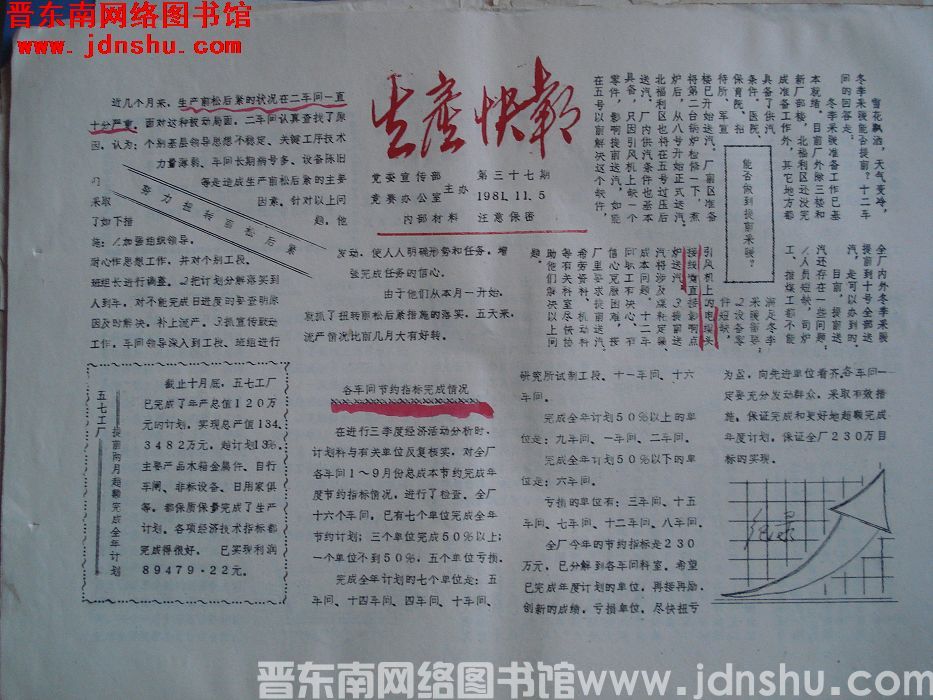 晋东南网络图书馆
www.jdnshu.com
生产快报
党委宣传部
党委办公室
主办
第三十七期
1981.11.5
内部材料 注意保密
努力扭转前松后紧
近几个月来，生产前松后紧的状况在二车间一直
十分严重。面对这种被动局面，二车间认真查找了原
因。认为：个别基层领导思想不稳定、关键工序技术
力量薄弱、车间长期病号多、设备陈旧
等是造成生产前松后紧的主要
因素。针对以上问
题，他
采取
了如下措
施：1加强组织领导。
耐心作思想工作，并对个别工段、
班组长进行调整。2把计划分解落实到
人到车，对不能完成日进度的要查明原
因及时解决，补上流产。3抓宣传鼓动
工作。车间领导深入到工段、班组进行
发动，使人人明确形势和任务，增
强完成任务的信心。
由于他们从本月一开始，
就抓了扭转前松后紧措施的落实，五天来，
流产情况比前几月大有好转。
能否做到提前采暖？
雪花飘洒，天气变冷，
冬季采暖能否提前？十二车
间的回答是：
冬季采暖准备工作已基
本就绪，目前厂外除三楼和
新厂部楼，北福利区还没完
成准备工作外，其它地方都
具备了供汽
条件。医院、
保育院、招
待所、军宣
楼已开始送汽。厂前区准备
将第二台锅炉检修一下，煮
炉后，从八号开始正式送汽。
北福利区也可在五号过压后
送汽。厂内供汽条件也基本
具备，只因引风机上缺一个
零件，影响提前送汽，如能
在五号以前解决这个缺件，
全厂内外冬季采暖
提前到十号全部送
汽，是可以办到的。
目前，提前送
汽还存在一些问题：
1人员紧缺，司炉
工、推煤工都不能
满足冬季
采暖需要。
2设备零
件短缺，
引风机上的电煤头
接线嘴直接影响点
炉送汽。3提前送
汽将涉及煤耗定量
成本问题。十二车
间职工有决心、有
信心克服困难，按
厂里要求提前送汽，
希劳资科、机动科
等有关科室尽快协
助他们解决以上问
题。
五七工厂
提前两月超额完成全年计划
截止十月底，五七工厂
已完成了年产总值120万
元的计划，实现总产值134.
3482万元，超计划13%。
主要产品木箱金属件、自行
车闸、非标设备、日用家俱
等，都保质保量完成了生产
计划，各项经济技术指标都
完成得很好。 已实现利润
89479·22元。
各车间节约指标完成情况
在进行三季度经济活动分析时，
计划科与有关单位反复核实，对全厂
各车间1～9月份总成本节约完成年
度节约指标情况，进行了检查。全厂
十六个车间，已有七个单位完成全年
节约计划；三个单位完成50%以上；
一个单位不到50%，五个单位亏损。
完成全年计划的七个单位是：五
车间、十四车间、四车间、十车间、
研究所试制工段、十一车间、十六
车间。
完成全年计划50%以上的单
位是：九车间、一车间、二车间。
完成全年计划50%以下的单
位是：六车间。
亏损的单位有：三车间、十五
车间、七车间、十二车间、八车间。
全厂今年的节约指标是230
万元，已分解到各车间科室。希望
已完成年度计划的单位，再接再励，
创新的成绩，亏损单位，尽快扭亏
为盈，向先进单位看齐。各车间一
定要充分发动群众，采取有效措
施，保证完成和更好地超额完成
年度计划，保证全厂230万目
标的实现。
纪录
晋东南网络图书馆 www.jdnshu.com